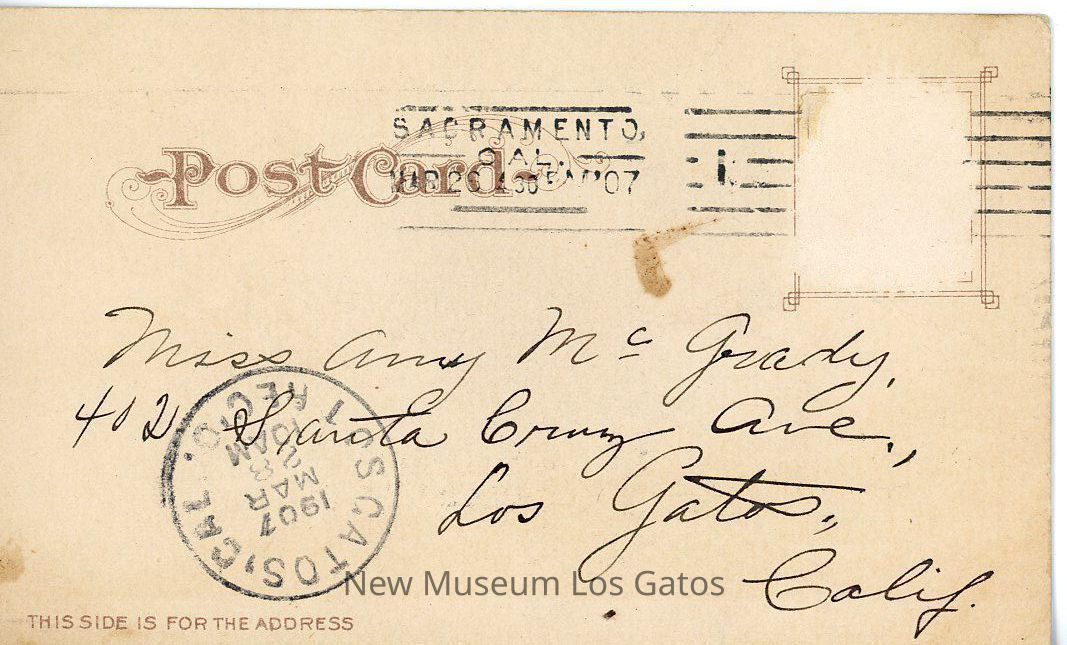 Post Card
SACRAMENTO,
CAL.
MAR 26 430 PM '07
Miss Amy Mc Grady,
402 Santa Cruz Ave.,
Los Gatos,
Calif.
LOS GATOS, CAL.
REC'D.
10 AM
MAR
1907
New Museum Los Gatos
THIS SIDE IS FOR THE ADDRESS